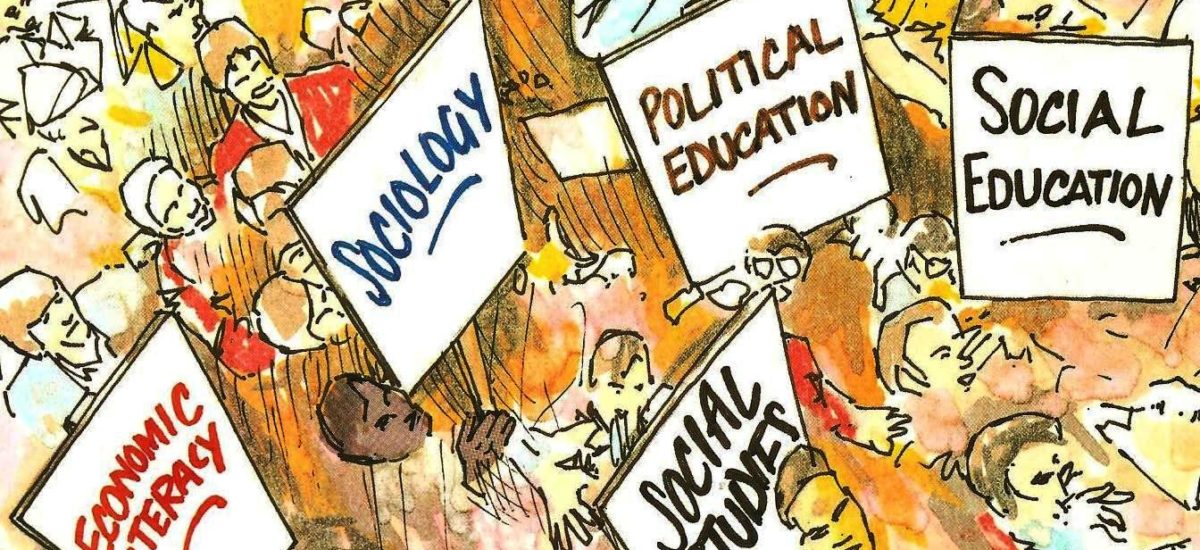 SOCIOLOGY
POLITICAL
EDUCATION
SOCIAL
EDUCATION
ECONOMIC
TERACY
SOCIAL
STUDIES